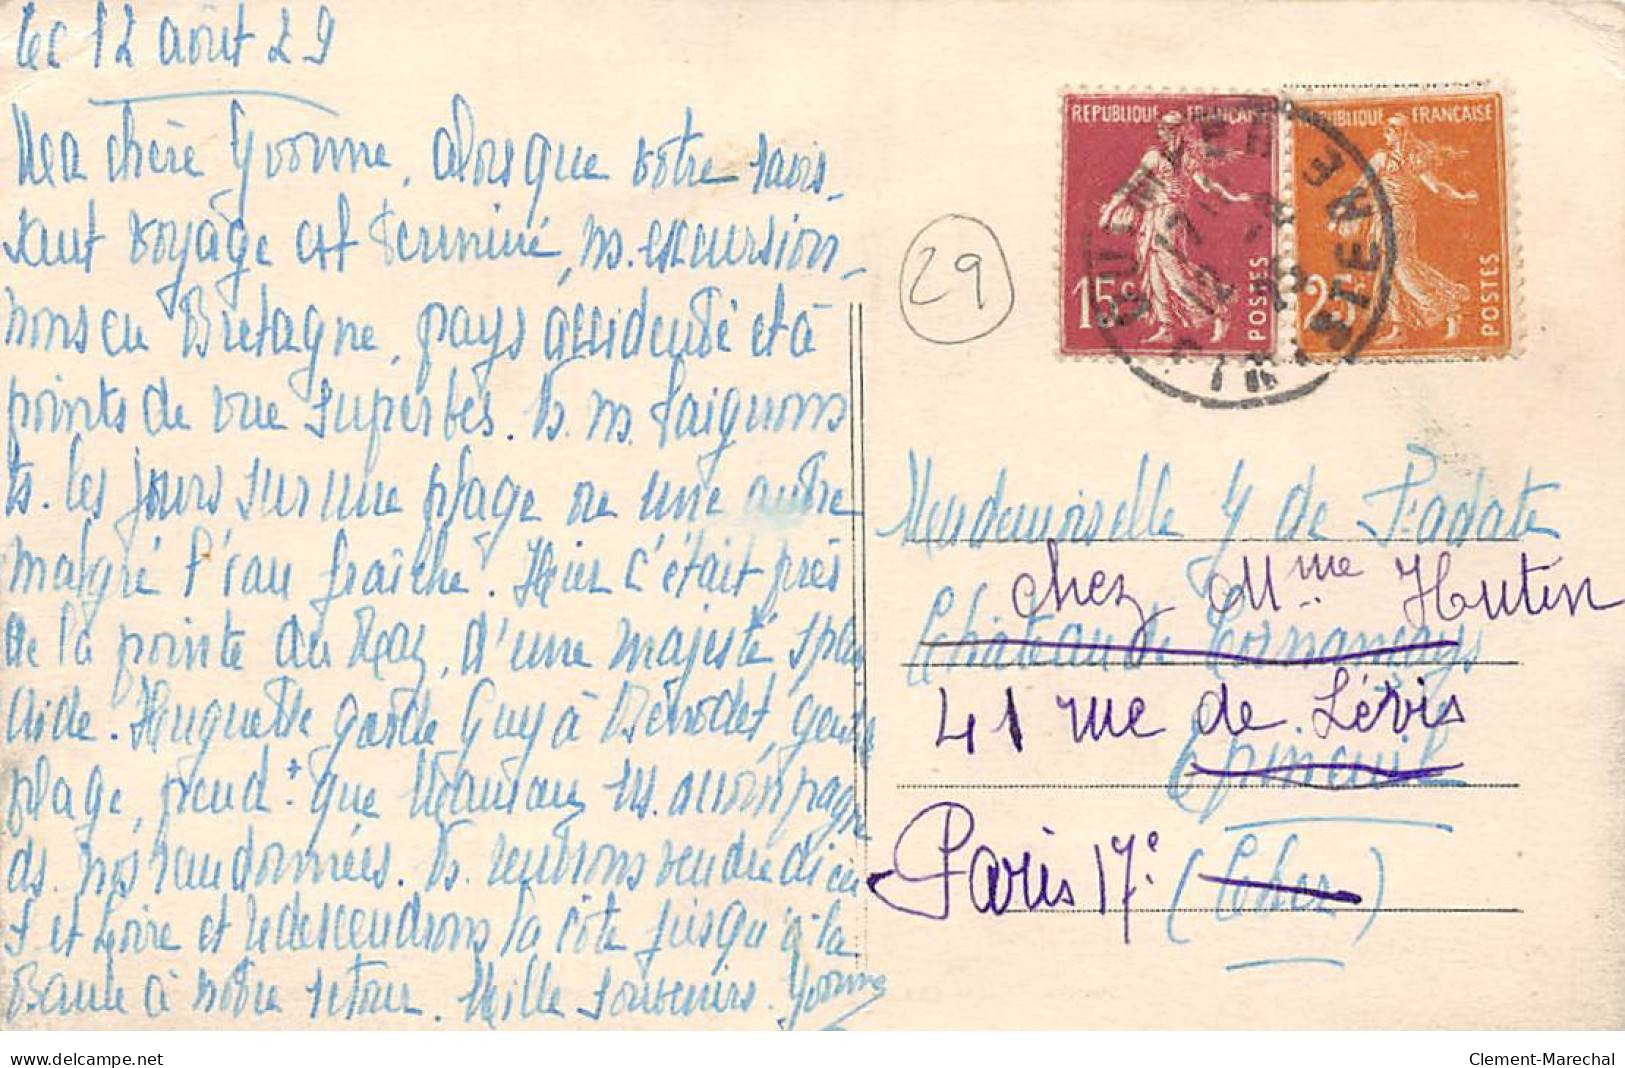 Le 12 août 29
Ma chère Yvonne, alors que votre ravis-
sant voyage est terminé, ns. excursion-
nons en Bretagne, pays accidenté et à
points de vue superbes. Ns. ns. baignons
ts. les jours sur une plage ou une autre
malgré l'eau fraîche. Hier c'était près
de la pointe du Raz, d'une majesté splen
dide. Huguette garde Guy à Bénodet, gentille
plage, pendt. que ns. accompagne
ds. nos randonnées. Ns. rentrons vendredi en
I et Loire et redescendrons la côte jusqu'à la
Baule à notre retour. Mille souvenirs. Yvonne
REPUBLIQUE FRANÇAISE
15c
POSTES
REPUBLIQUE FRANÇAISE
25c
POSTES
QUIMPER
17
12 -8
29
FINISTERE
29
Mademoiselle Y de
chez Mme Hutin
Château de Cornançay
41 rue de Lévis
Epineuil
Paris 17e
(Cher)
www.delcampe.net
Clement-Marechal